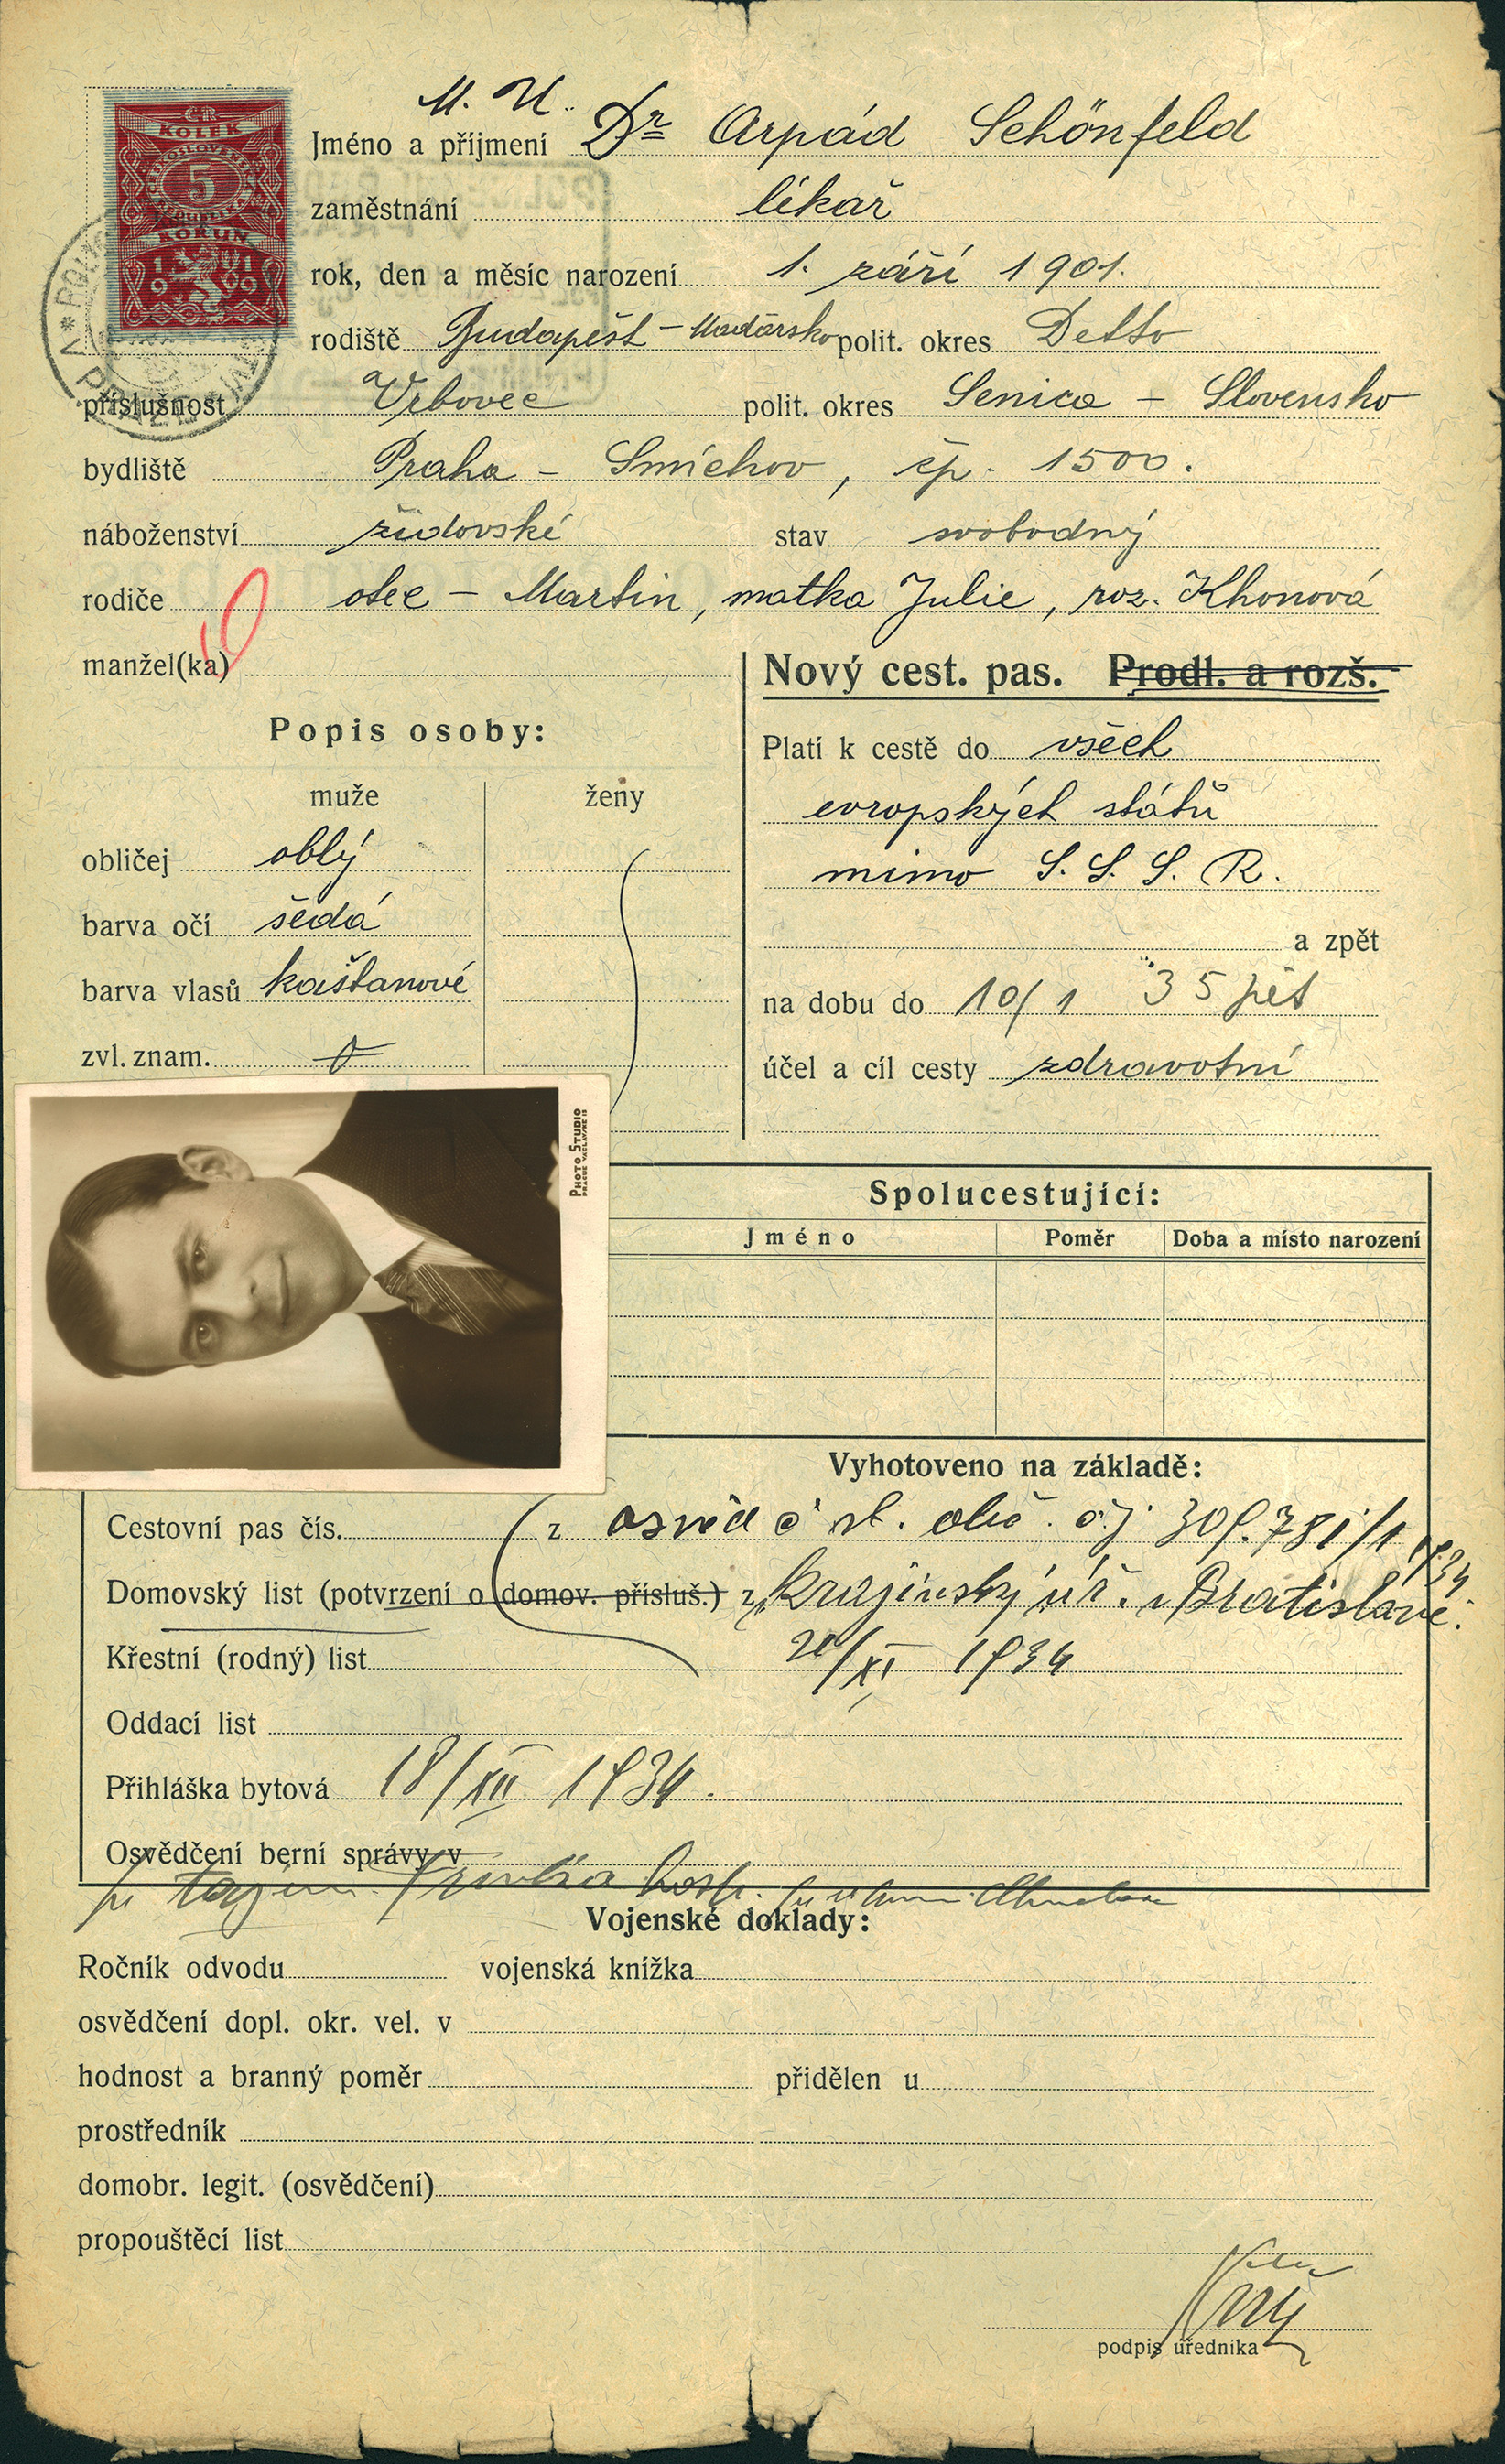 M. U.
Jméno a příjmení Dr Arpád Schönfeld
ČR
KOLEK
5
KORUN
1919
zaměstnání lékař
rok, den a měsíc narození 1. září 1901.
rodiště Budapešt - Maďarsko polit. okres Detto
příslušnost Vrbovce polit. okres Senica - Slovensko
bydliště Praha - Smíchov, čp. 1500.
náboženství židovské stav svobodný
rodiče otec - Martin, matka Julie, roz. Khonová
manžel(ka)
Nový cest. pas. Prodl. a rozš.
Popis osoby:
muže ženy
obličej oblý
barva očí šedá
barva vlasů kaštanové
zvl. znam.
Platí k cestě do všech
evropských států
mimo S. S. S. R.
a zpět
na dobu do 10/1 35 pět
účel a cíl cesty zdravotní
PHOTO STUDIO
PRAGUE VÁCLAVSKÉ 15
Spolucestující:
Jméno Poměr Doba a místo narození
Vyhotoveno na základě:
Cestovní pas čís. z osvěd č st. obč. čj. 309.781/1 1934
Domovský list (potvrzení o domov. přísluš.) z Krajinský úř. v Bratislavě.
Křestní (rodný) list 20/XI 1934
Oddací list
Přihláška bytová 18/XII 1934.
Osvědčení berní správy v
Vojenské doklady:
Ročník odvodu vojenská knížka
osvědčení dopl. okr. vel. v
hodnost a branný poměr přidělen u
prostředník
domobr. legit. (osvědčení)
propouštěcí list
podpis úředníka